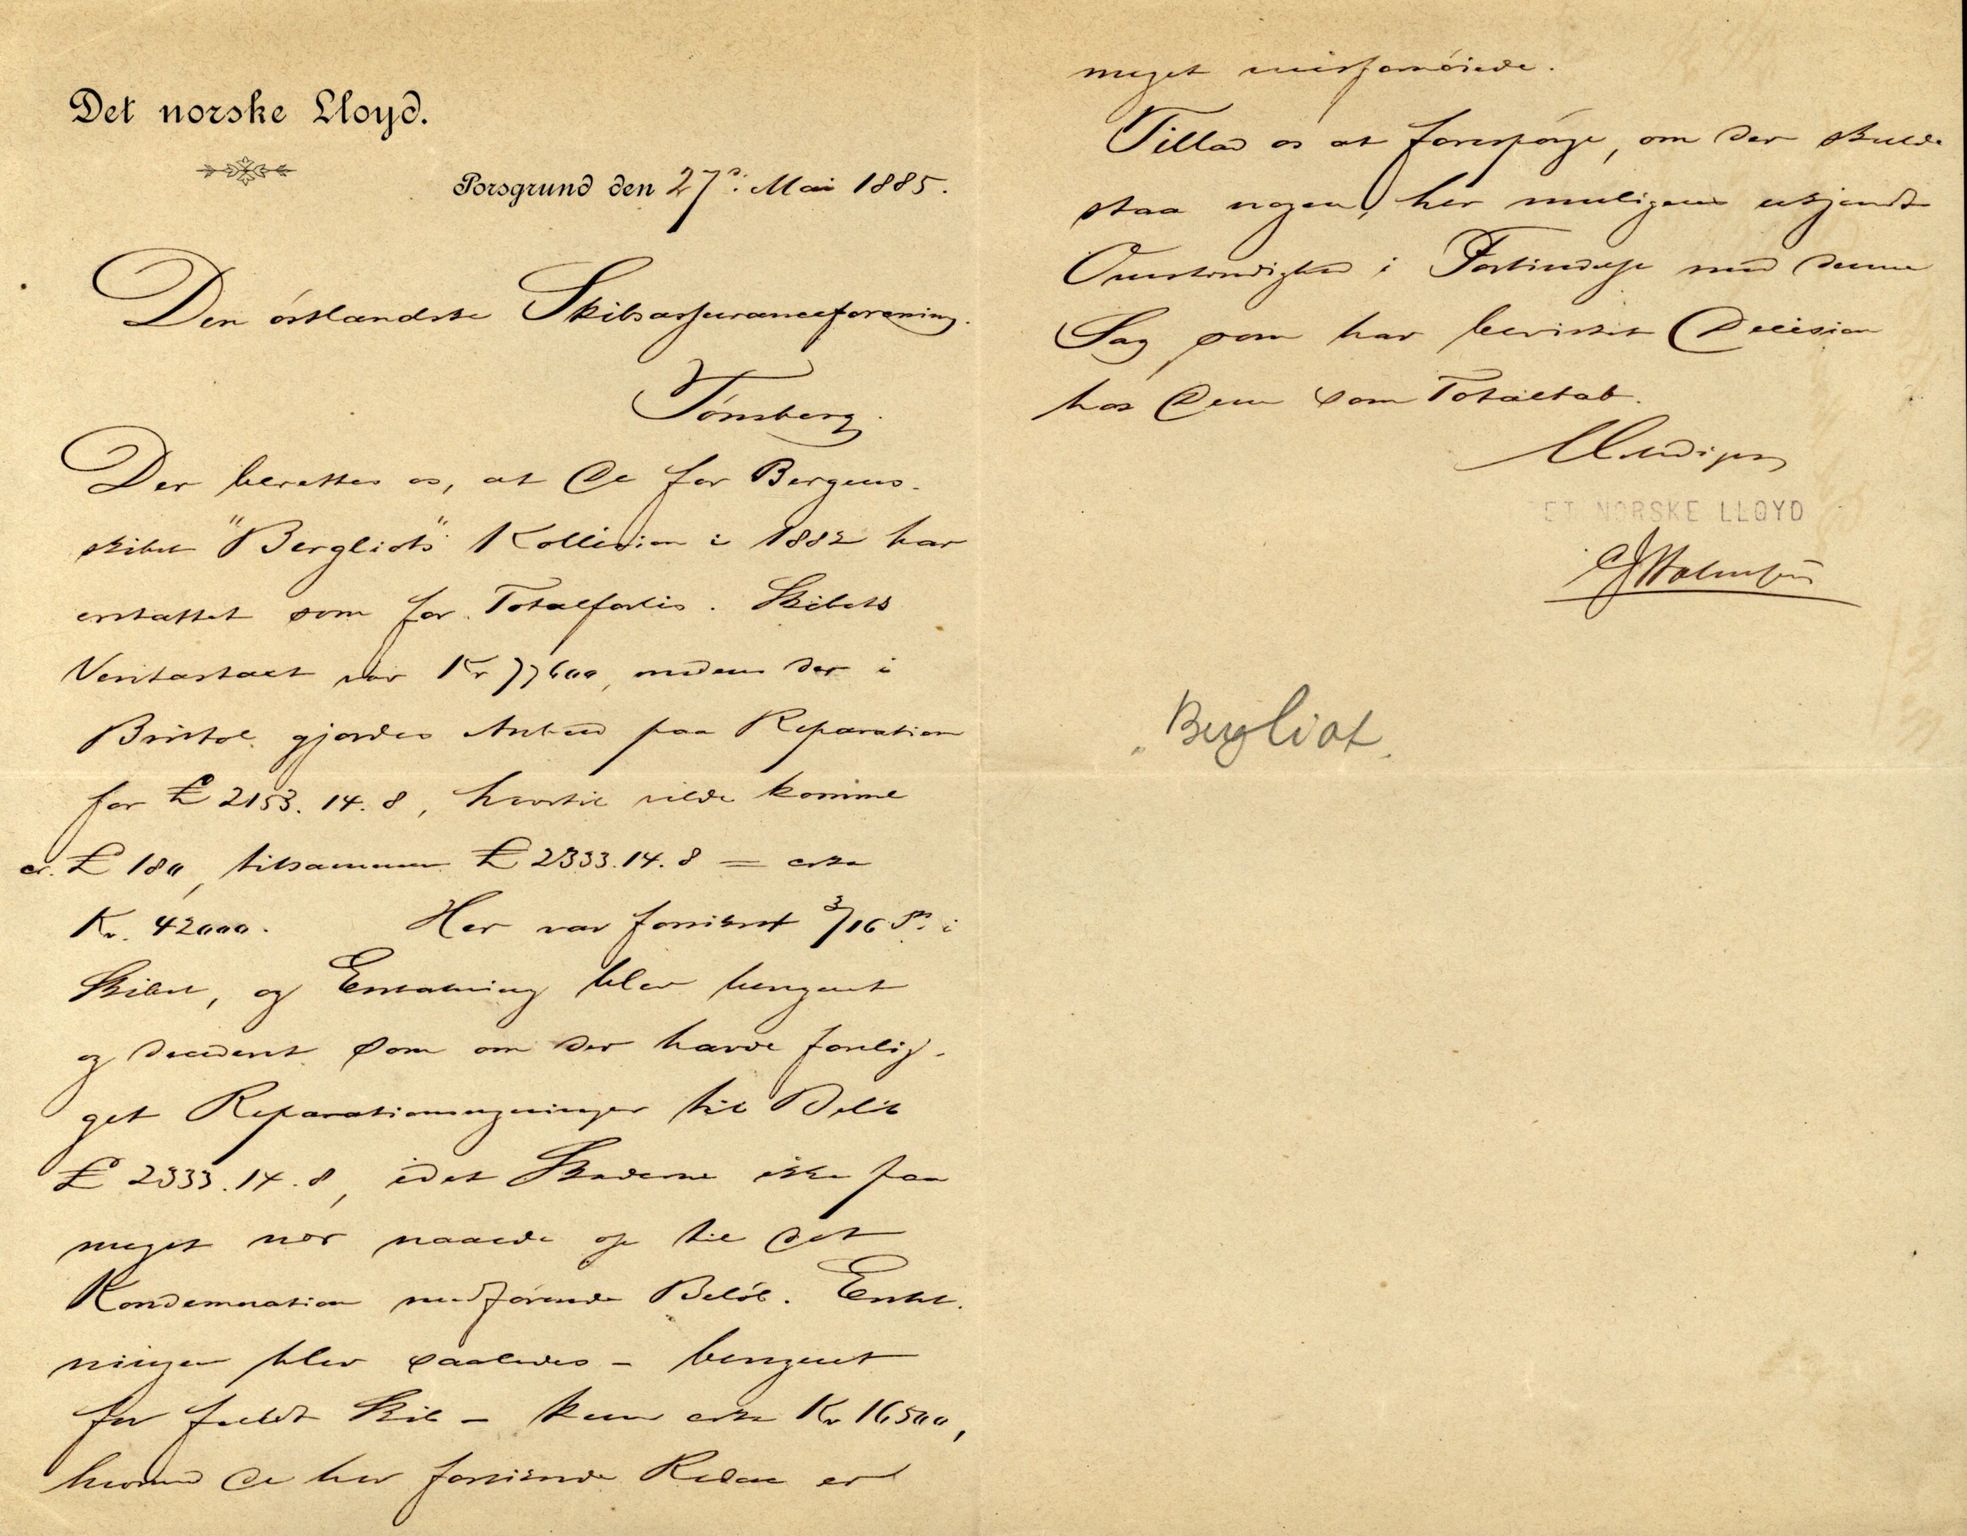 Det norske Lloyd.
Porsgrund den 27de Mai 1885.
Den östlandske Skibsassuranceforening.
Tönsberg.
Der berettes os, at De for Bergens-
skibet "Bergliots" Kollision i 1882 har
erstattet som for Totalforlis. Skibets
Veritastaxt var Kr 77600, medens der i
Bristol gjordes Anbud paa Reparation
for £ 2153.14.8, hvortil vilde komme
cr. £ 180, tilsammen £ 2333.14.8 = cirka
Kr. 42000. Her var forsikret 3/16 P. i
Skibet, og Erstatning blev beregnet
og decideret som om der havde forelig-
get Reparationsregninger til Belöb
£ 2333.14.8, idet Skaderne ikke paa
meget nær naaede op til det
Kondemnation medförende Belöb. Erstat-
ningen blev saaledes – beregnet
for fuldt Skib – kun cirka Kr 16500,
hvormed De her forsikrede Redere er
meget misfornöiede.
Tillad os at forespörge, om der skulde
staa nogen, her muligens ukjendt
Omstændighed i Forbindelse med denne
Sag som har bevirket Decision
hos Dem som Totaltab.
Ærbödigst
ET NORSKE LLOYD
"Bergliot"